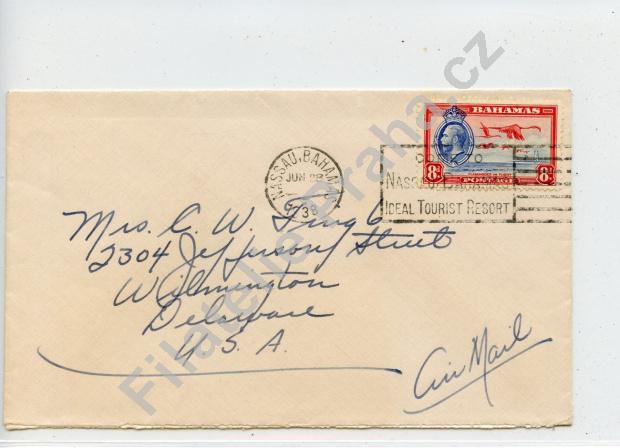 BAHAMAS
8d. 8d.
POSTAGE
NASSAU, BAHAMAS
JUN
38
COME TO
NASSAU, BAHAMAS
IDEAL TOURIST RESORT
Mrs. C. W.
2304 Jefferson Street
Wilmington
Delaware
U. S. A.
Air Mail
Filatelie-Praha.cz